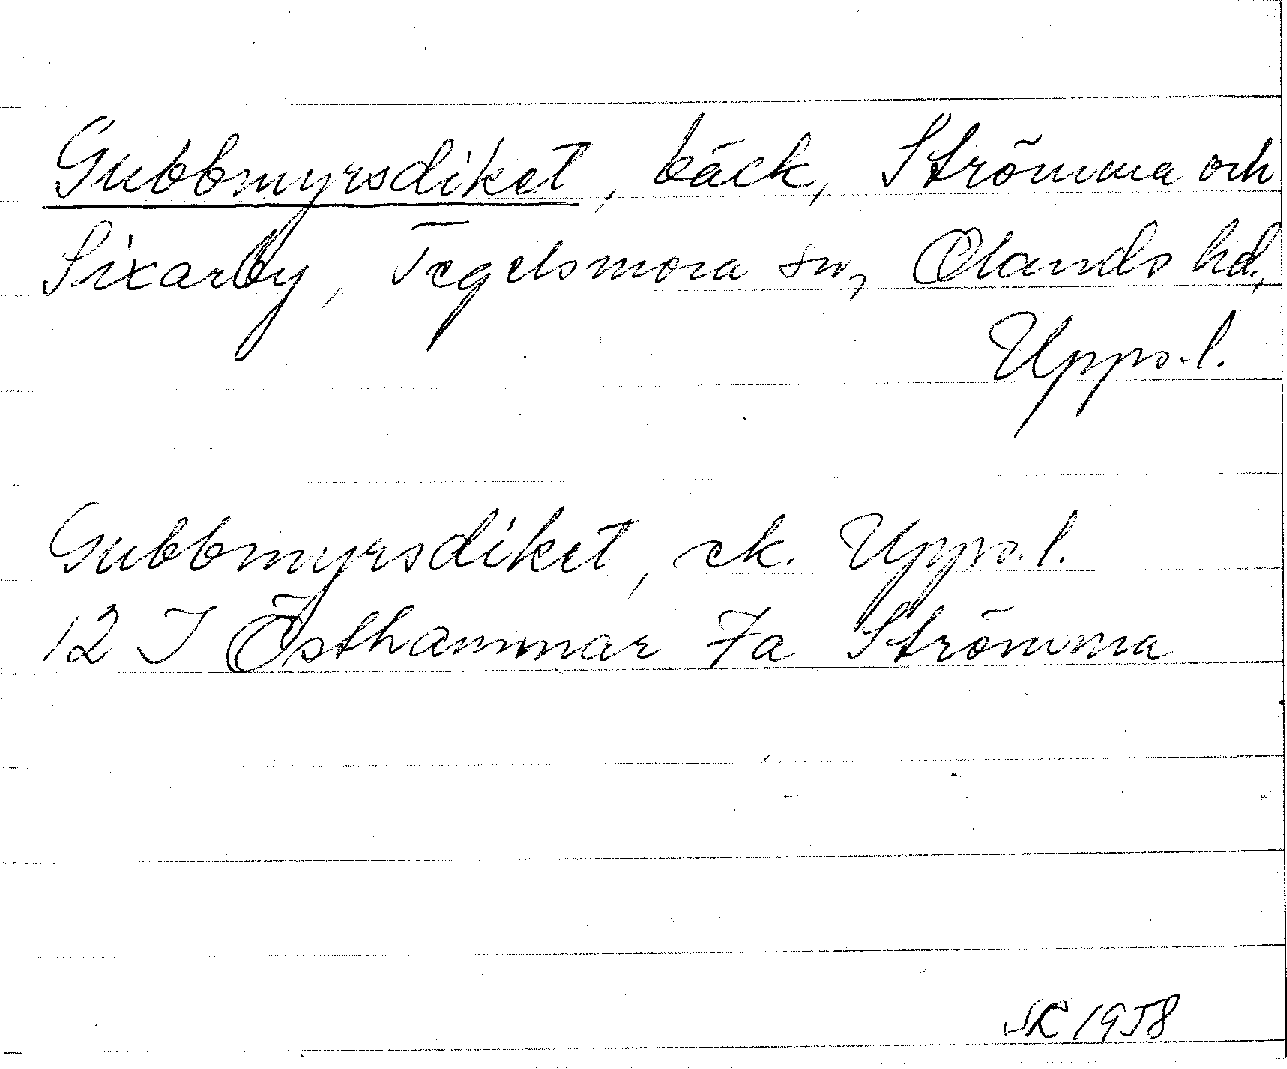 Gubbmyrsdiket, bäck, Strömma och
Sixarby, Tegelsmora sn, Olands hd,
Upps. l.
Gubbmyrsdiket, ek. Upps. l.
12 I Östhammar 7a Strömma
SK 1958